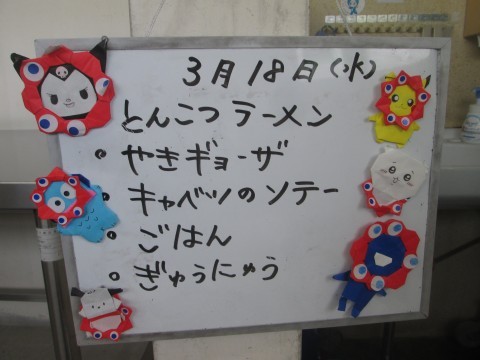 3月18日(水)
とんこつラーメン
• やきギョーザ
• キャベツのソテー
• ごはん
• ぎゅうにゅう